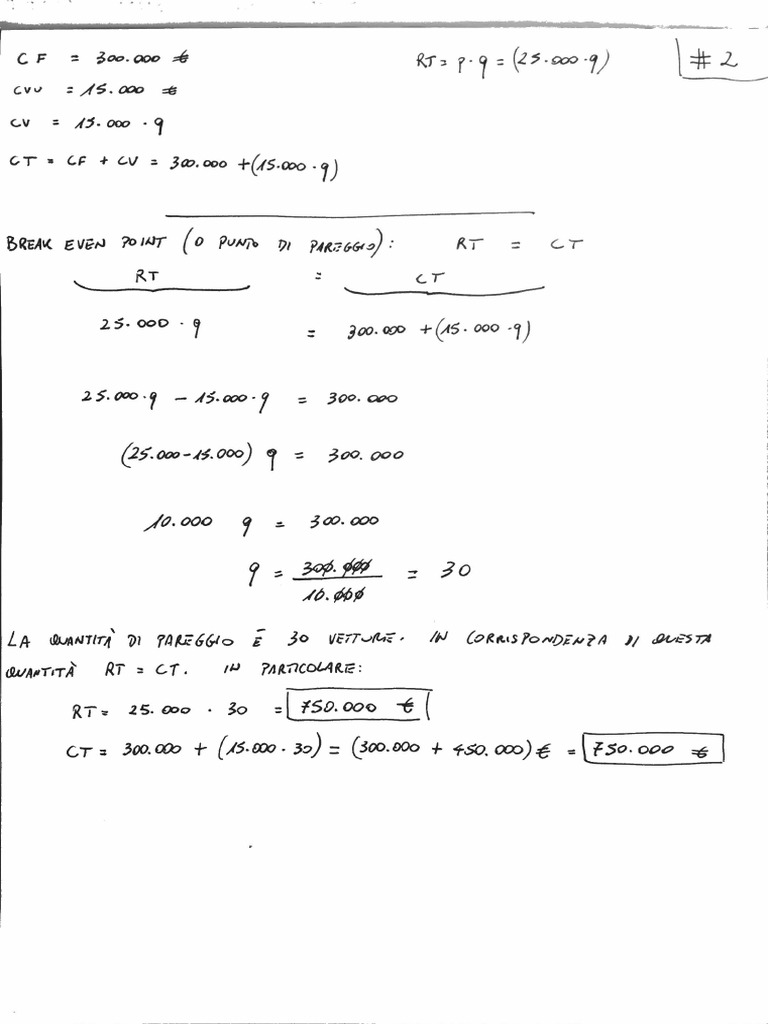 CF = 300.000 €
RT = p · q = (25.000 · q)
# 2
CVU = 15.000 €
CV = 15.000 · q
CT = CF + CV = 300.000 + (15.000 · q)
BREAK EVEN POINT (O PUNTO DI PAREGGIO): RT = CT
RT = CT
25.000 · q = 300.000 + (15.000 · q)
25.000 · q - 15.000 · q = 300.000
(25.000 - 15.000) q = 300.000
10.000 q = 300.000
q = 300.000 / 10.000 = 30
LA QUANTITÀ DI PAREGGIO È 30 VETTURE. IN CORRISPONDENZA DI QUESTA
QUANTITÀ RT = CT. IN PARTICOLARE:
RT = 25.000 · 30 = 750.000 €
CT = 300.000 + (15.000 · 30) = (300.000 + 450.000) € = 750.000 €